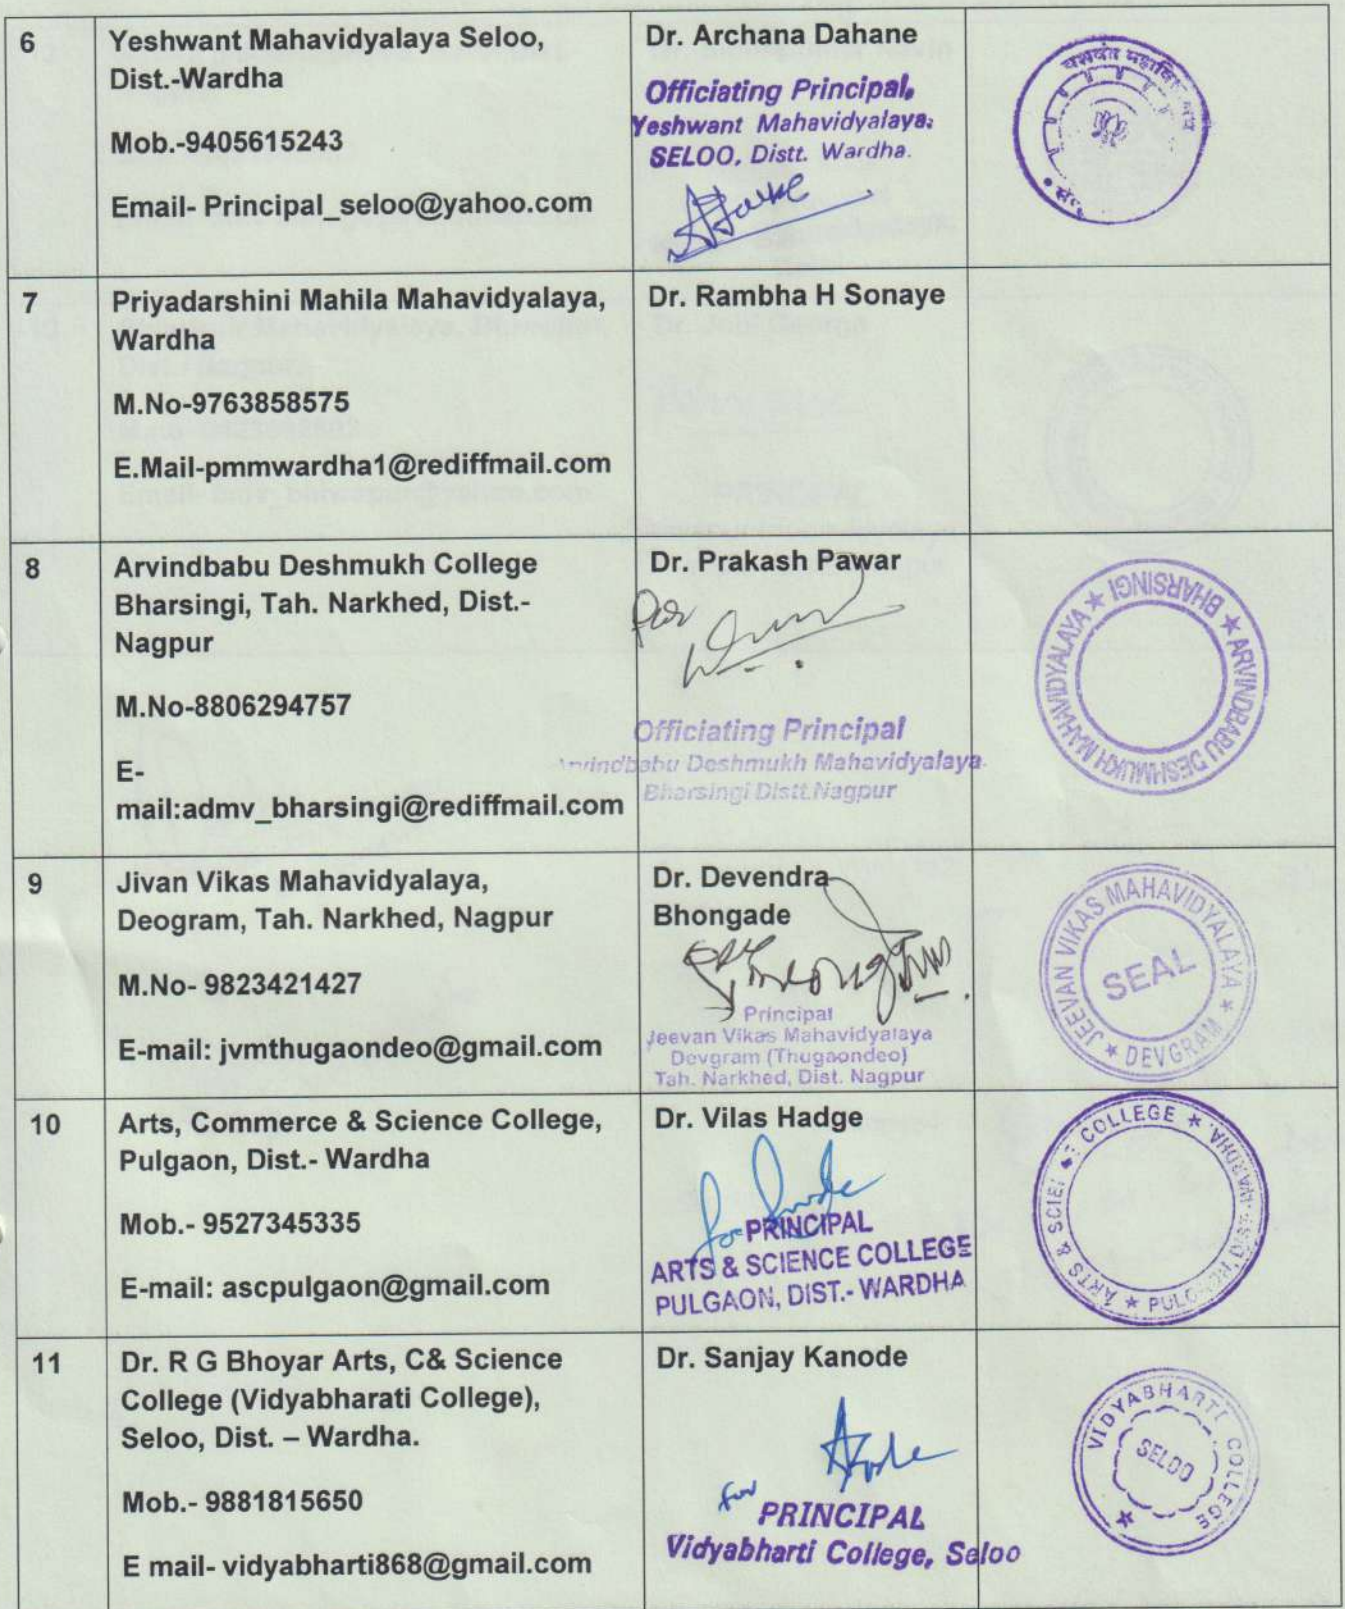 6
Yeshwant Mahavidyalaya Seloo,
Dist.-Wardha
Mob.-9405615243
Email- Principal_seloo@yahoo.com
Dr. Archana Dahane
Officiating Principal,
Yeshwant Mahavidyalaya,
SELOO, Distt. Wardha.
यशवंत
7
Priyadarshini Mahila Mahavidyalaya,
Wardha
M.No-9763858575
E.Mail-pmmwardha1@rediffmail.com
Dr. Rambha H Sonaye
8
Arvindbabu Deshmukh College
Bharsingi, Tah. Narkhed, Dist.-
Nagpur
M.No-8806294757
E-
mail:admv_bharsingi@rediffmail.com
Dr. Prakash Pawar
Officiating Principal
Arvindbabu Deshmukh Mahavidyalaya
Bharsingi Distt.Nagpur
★ ARVINDBABU DESHMUKH MAHAVIDYALAYA ★ BHARSINGI
9
Jivan Vikas Mahavidyalaya,
Deogram, Tah. Narkhed, Nagpur
M.No- 9823421427
E-mail: jvmthugaondeo@gmail.com
Dr. Devendra
Bhongade
Principal
Jeevan Vikas Mahavidyalaya
Devgram (Thugaondeo)
Tah. Narkhed, Dist. Nagpur
JEEVAN VIKAS MAHAVIDYALAYA ★ DEVGRAM ★
SEAL
10
Arts, Commerce & Science College,
Pulgaon, Dist.- Wardha
Mob.- 9527345335
E-mail: ascpulgaon@gmail.com
Dr. Vilas Hadge
for
PRINCIPAL
ARTS & SCIENCE COLLEGE
PULGAON, DIST.- WARDHA
ARTS & COLLEGE ★ WARDHA
11
Dr. R G Bhoyar Arts, C& Science
College (Vidyabharati College),
Seloo, Dist. – Wardha.
Mob.- 9881815650
E mail- vidyabharti868@gmail.com
Dr. Sanjay Kanode
for
PRINCIPAL
Vidyabharti College, Seloo
VIDYABHARTI COLLEGE ★
SELOO